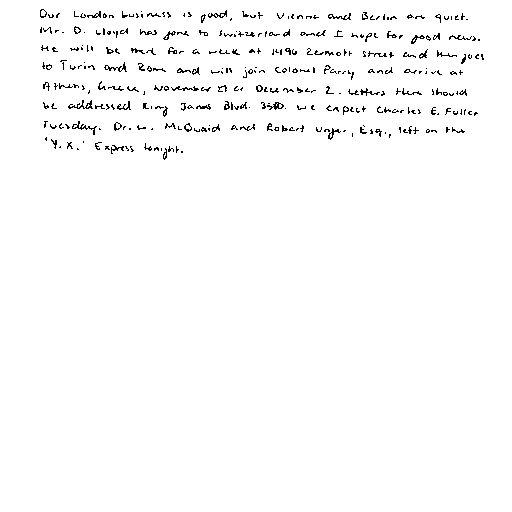 Our London business is good, but Vienna and Berlin are quiet.
Mr. D. Lloyd has gone to Switzerland and I hope for good news.
He will be there for a week at 1496 Zermott street and then goes
to Turin and Rome and will join Colonel Parry and arrive at
Athens, Greece, November 27 or December 2. Letters there should
be addressed King James Blvd. 3580. We expect Charles E. Fuller
Tuesday. Dr. L. McQuaid and Robert Unger, Esq., left on the
'Y.X.' Express tonight.